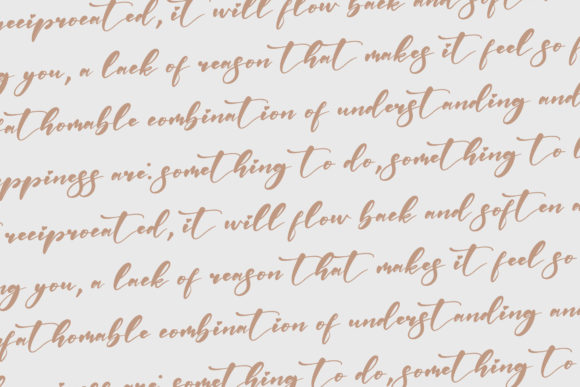 reciprocated, it will flow back and soften
you, a lack of reason that makes it feel so
fathomable combination of understanding and
ppiness are: something to do, something to
reciprocated, it will flow back and soften
ng you, a lack of reason that makes it feel so
nfathomable combination of understanding and
ppiness are: something to do, something to